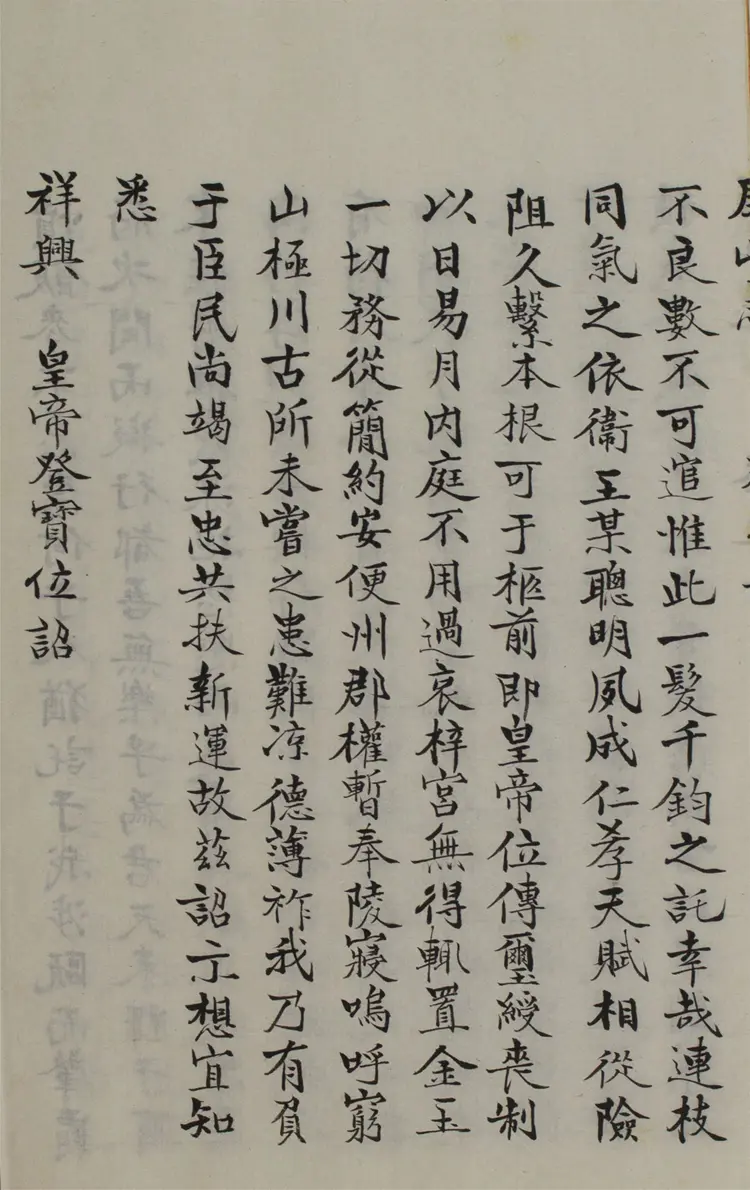 不良數不可逭惟此一髮千鈞之託幸哉連枝
同氣之依衞王某聰明夙成仁孝天賦相從險
阻久繫本根可于柩前即皇帝位傳璽綬喪制
以日易月内庭不用過哀梓宮無得輒置金玉
一切務從簡約安便州郡權暫奉陵寢嗚呼窮
山極川古所未嘗之患難凉德薄祚我乃有負
于臣民尚竭至忠共扶新運故茲詔示想宜知
悉
祥興　皇帝登寶位詔